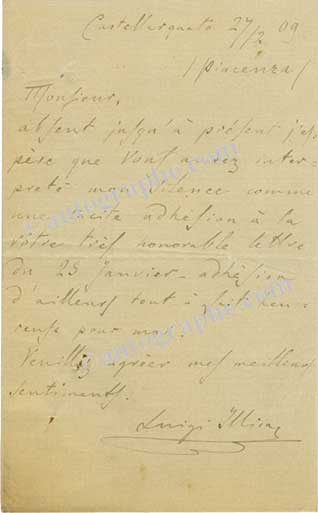 Castellarquato 27/2 09
(Piacenza)
Monsieur,
absent jusqu'à présent j'es-
père que Vous aurez inter-
preté mon silence comme
une tacite adhésion à la
vôtre très honorable lettre
du 23 Janvier - adhésion
d'ailleurs tout à fait heu-
reuse pour moi.
Veuillez agréer mes meilleurs
sentiments.
Luigi Illica